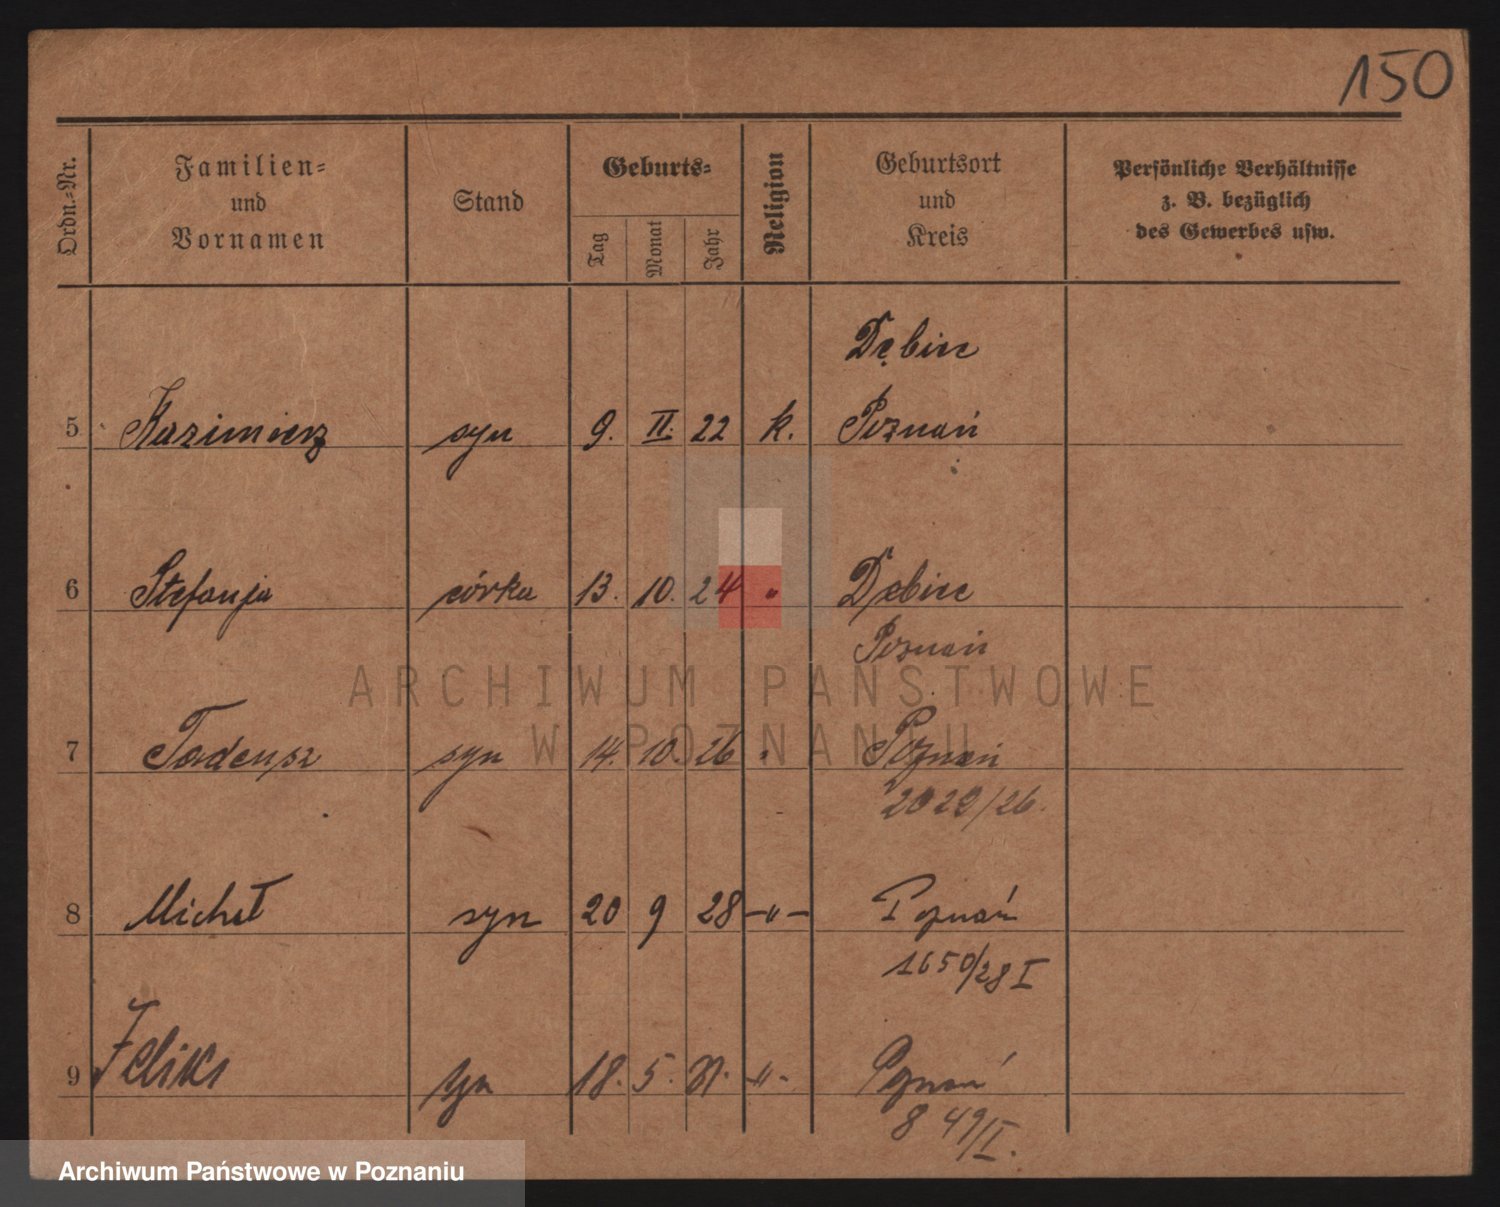 150
Ordn.-Nr.
Familien-
und
Vornamen
Stand
Geburts-
Tag
Monat
Jahr
Religion
Geburtsort
und
Kreis
Persönliche Verhältnisse
z. B. bezüglich
des Gewerbes usw.
Dębiec
5 Kazimierz syn 9. II. 22 k. Poznań
6 Stefanja córka 13. 10. 24 " Dębiec
Poznań
ARCHIWUM PAŃSTWOWE
W POZNANIU
7 Tadeusz syn 14. 10. 26 " Poznań
2020/26.
8 Michał syn 20 9 28 -"- Poznań
1650/28 I
9 Feliks syn 18. 5. 31. -"- Poznań
849/II.
Archiwum Państwowe w Poznaniu